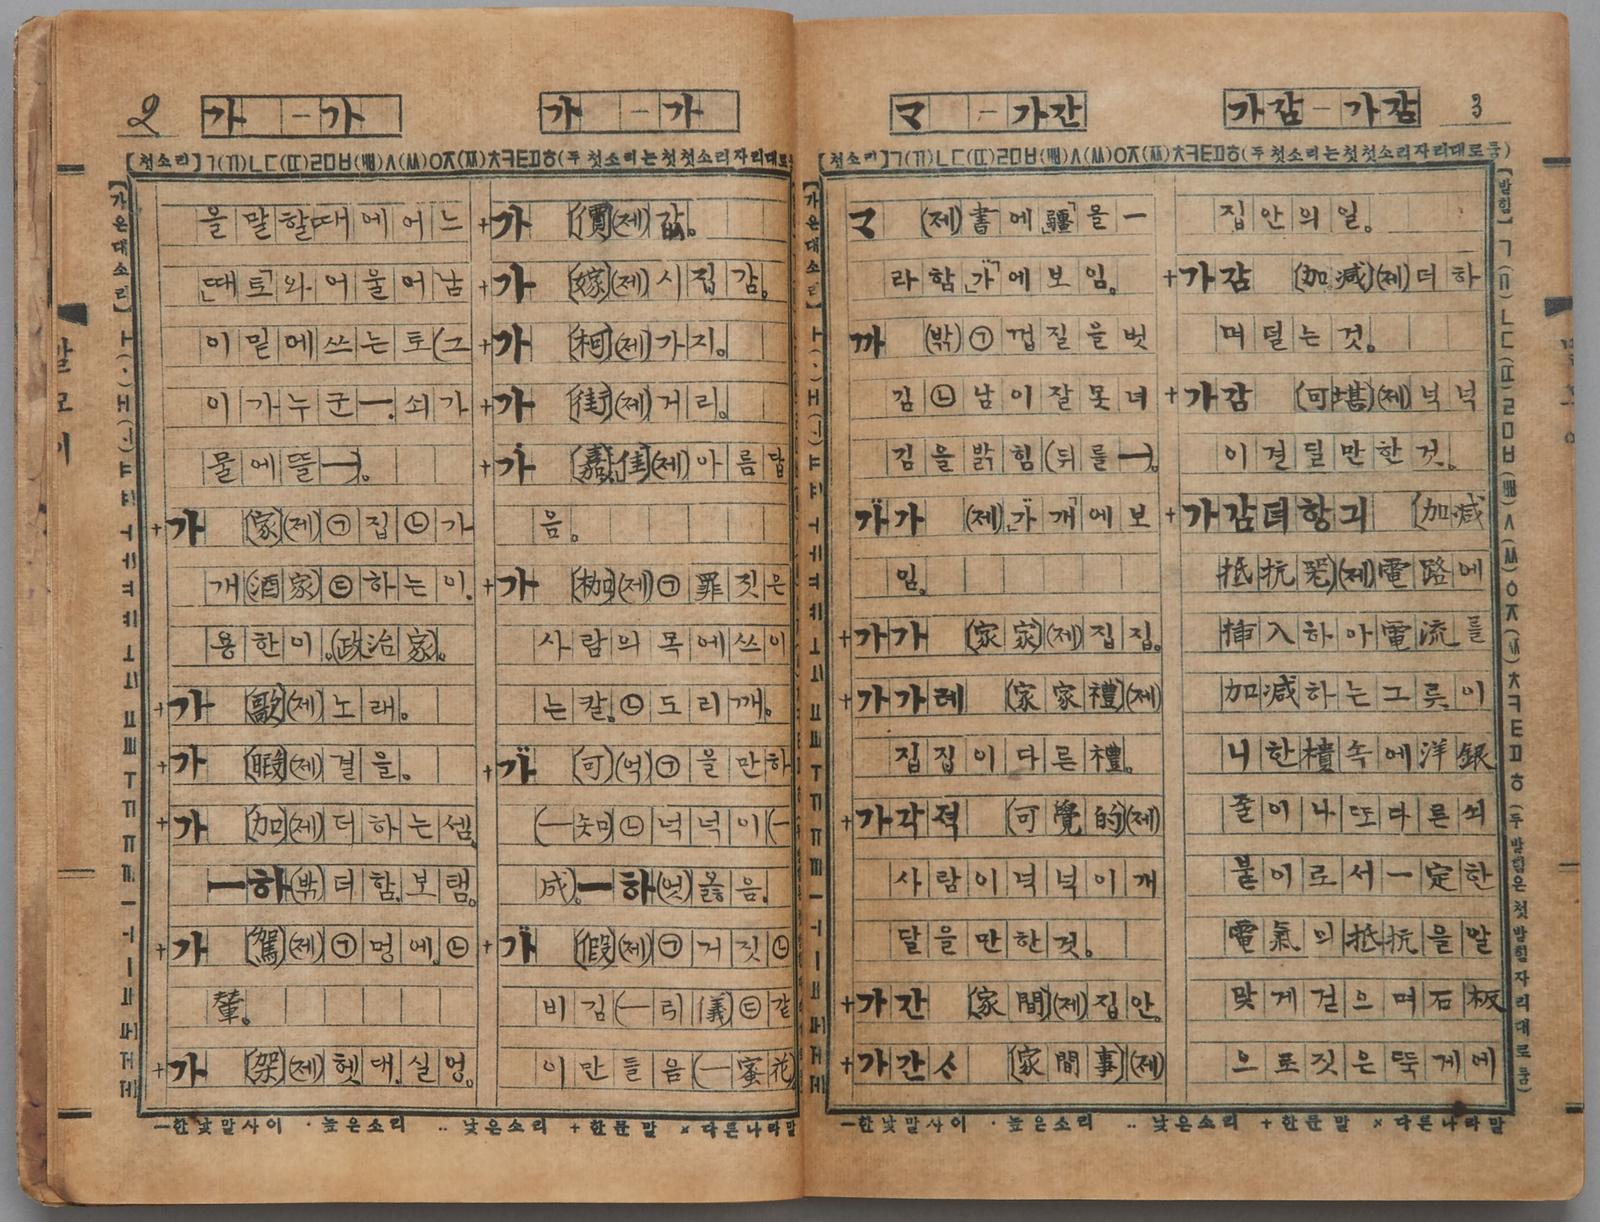 2
가 - 가
가 - 가
[첫소리] ㄱ(ㄲ)ㄴㄷ(ㄸ)ㄹㅁㅂ(ㅃ)ㅅ(ㅆ)ㅇㅈ(ㅉ)ㅊㅋㅌㅍㅎ(두 첫소리는 첫 첫소리 자리대로
[가온대소리] ㅏ(ㆍ)ㅐ(ㆎ)ㅑ
말모이
을말할때에어느
「때토」와어울어남
이밑에쓰는토(그
이가누군一. 쇠가
물에뜰一).
+가 (家)(제)㉠집㉡가
개(酒家)㉢하는이.
용한이.(政治家).
+가 (歌)(제)노래.
+가 (暇)(제)결을.
+가 (加)(제)더하는셈.
一하(밖)더함. 보탬.
+가 (駕)(제)㉠멍에.㉡
輦.
+가 (架)(제)헷대. 실멍.
+가 (價)(제)값.
+가 (嫁)(제)시집감.
+가 (柯)(제)가지.
+가 (街)(제)거리.
+가 (嘉, 佳)(제)아름답
음.
+가 (枷)(제)㉠罪짓은
사람의목에쓰이
는칼.㉡도리깨.
+가 (可)(억)㉠을만하
(一知)㉡넉넉이(一
成).一하(엇)옳음.
+가 (假)(제)㉠거짓㉡
비김(一引儀)㉢같
이만들음(一蜜花)
一한낯말사이 · 높은소리 ‥ 낮은소리 +한문말 ×다른나라말
ᄀᆞ - 가간
가감 - 가감
3
[첫소리] ㄱ(ㄲ)ㄴㄷ(ㄸ)ㄹㅁㅂ(ㅃ)ㅅ(ㅆ)ㅇㅈ(ㅉ)ㅊㅋㅌㅍㅎ(두 첫소리는 첫 첫소리 자리대로 둠)
[가온대소리] ㅏ(ㆍ)ㅐ(ㆎ)ㅑ
(제)書에「疆」을一
라함「가」에보임.
까 (밖)㉠껍질을벗
김㉡남이잘못녀
김을밝힘(뒤를一).
가가 (제)「가개」에보
임.
+가가 (家家)(제)집집.
+가가례 (家家禮)(제)
집집이다른禮.
+가각적 (可覺的)(제)
사람이넉넉이개
달을만한것.
+가간 (家間)(제)집안.
+가간ᄉᆞ (家間事)(제)
집안의일.
+가감 (加減)(제)더하
며덜는것.
+가감 (可堪)(제)넉넉
이견딜만한것.
+가감뎌항긔 (加減
抵抗器)(제)電路에
揷入하아電流를
加減하는그릇이
니한樻속에洋銀
줄이나또다른쇠
붙이로서一定한
電氣의抵抗을알
맞게걸으며石板
으로짓은뚝게에
[받힘] ㄱ(ㄲ)ㄴㄷ(ㄸ)ㄹㅁㅂ(ㅃ)ㅅ(ㅆ)ㅇㅈ(ㅉ)ㅊㅋㅌㅍㅎ(두 받힘은 첫 받힘 자리대로 둠)
一한낯말사이 · 높은소리 ‥ 낮은소리 +한문말 ×다른나라말